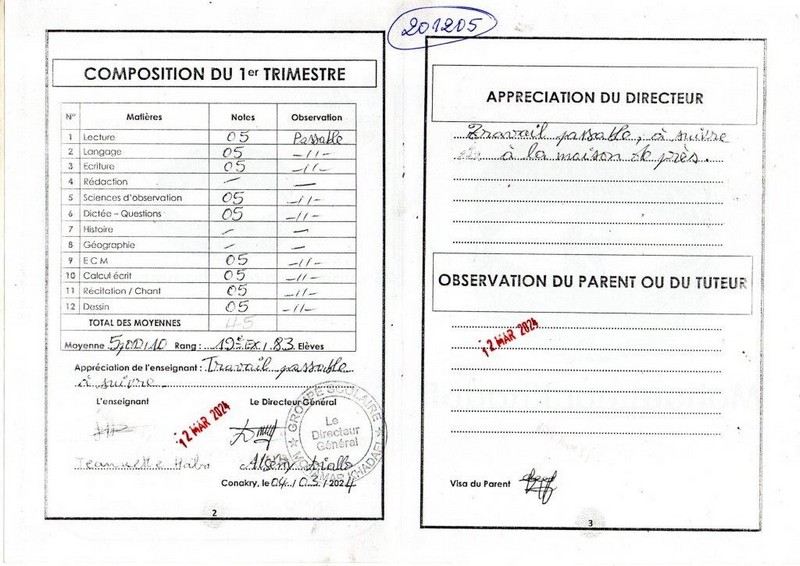 201205
COMPOSITION DU 1er TRIMESTRE
N° Matières Notes Observation
1 Lecture 05 Passable
2 Langage 05 –//–
3 Ecriture 05 –//–
4 Rédaction – –
5 Sciences d'observation 05 –//–
6 Dictée – Questions 05 –//–
7 Histoire – –
8 Géographie – –
9 E C M 05 –//–
10 Calcul écrit 05 –//–
11 Récitation / Chant 05 –//–
12 Dessin 05 –//–
TOTAL DES MOYENNES 45
Moyenne 5,00/10 Rang : 19e EX / 83 Elèves
Appréciation de l'enseignant : Travail passable
à suivre
L'enseignant Le Directeur Général
12 MAR 2024
GROUPE SCOLAIRE
Le
Directeur
Général
Conakry, le 04 / 03 / 2024
2
APPRECIATION DU DIRECTEUR
Travail passable, à suivre
à la maison de près.
OBSERVATION DU PARENT OU DU TUTEUR
12 MAR 2024
Visa du Parent
3